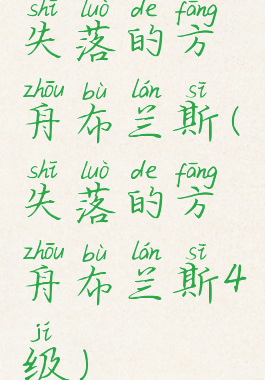 shī luò de fāng
失落的方
zhōu bù lán sī
舟布兰斯(
shī luò de fāng
失落的方
zhōu bù lán sī
舟布兰斯4
jí
级)